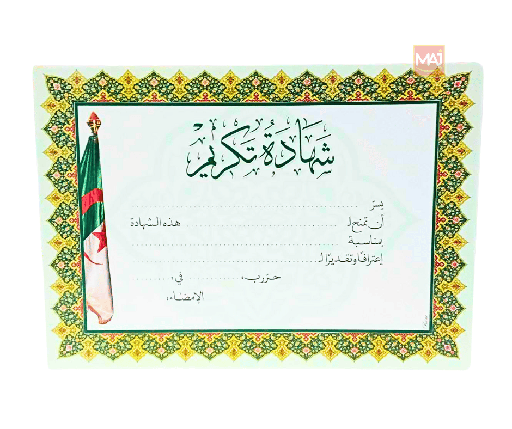 MAJ
شهادة تكريم
يسرّ ........................................
أن تمنح لـ ........................ هذه الشهادة
بمناسبة ........................................
إعترافا وتقديرًا لـ ........................................
حرّر بـ: ................ في: ............
الإمضاء: